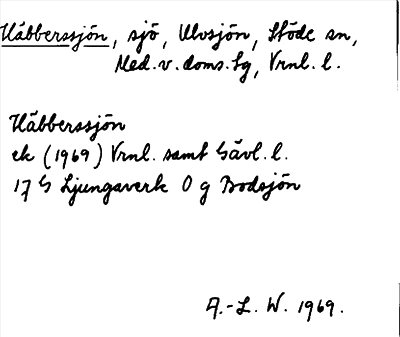 Häbberssjön, sjö, Ulvsjön, Stöde sn,
Med.v.doms.sg, Vrnl. l.
Häbberssjön
ek (1969) Vrnl. samt Gävl. l.
17 G Ljungaverk O g Bodsjön
A.-L. W. 1969.